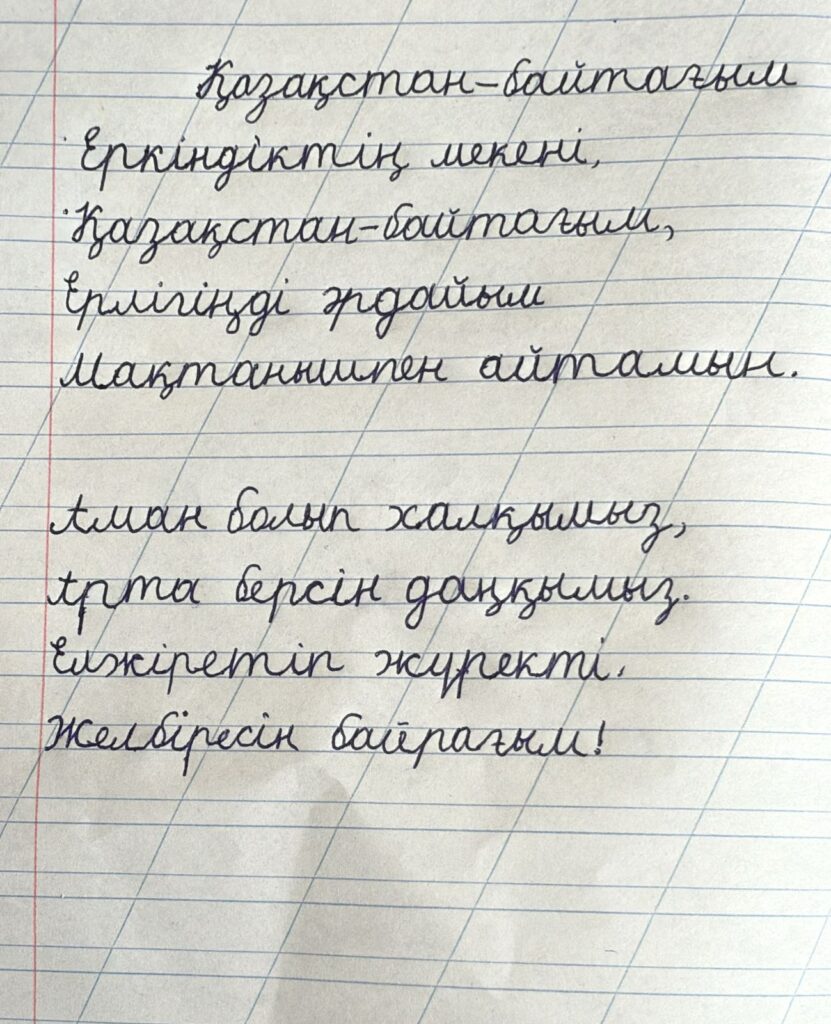 Қазақстан-байтағым
Еркіндіктің мекені,
Қазақстан-байтағым,
Ерлігіңді әрдайым
Мақтанышпен айтамын.
Аман болып халқымыз,
Арта берсін даңқымыз.
Елжіретіп жүректі,
Желбіресін байрағым!